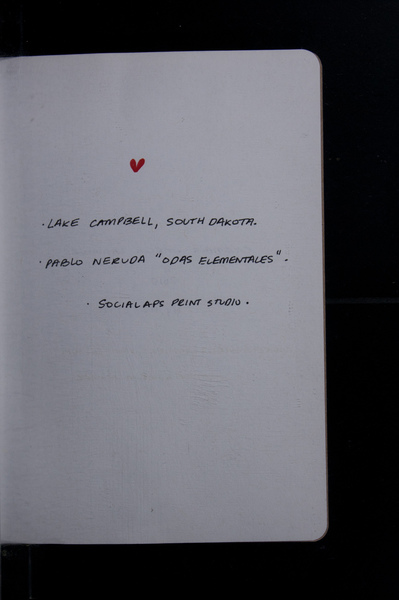 · LAKE CAMPBELL, SOUTH DAKOTA.
· PABLO NERUDA "ODAS ELEMENTALES".
· SOCIALAPS PRINT STUDIO.